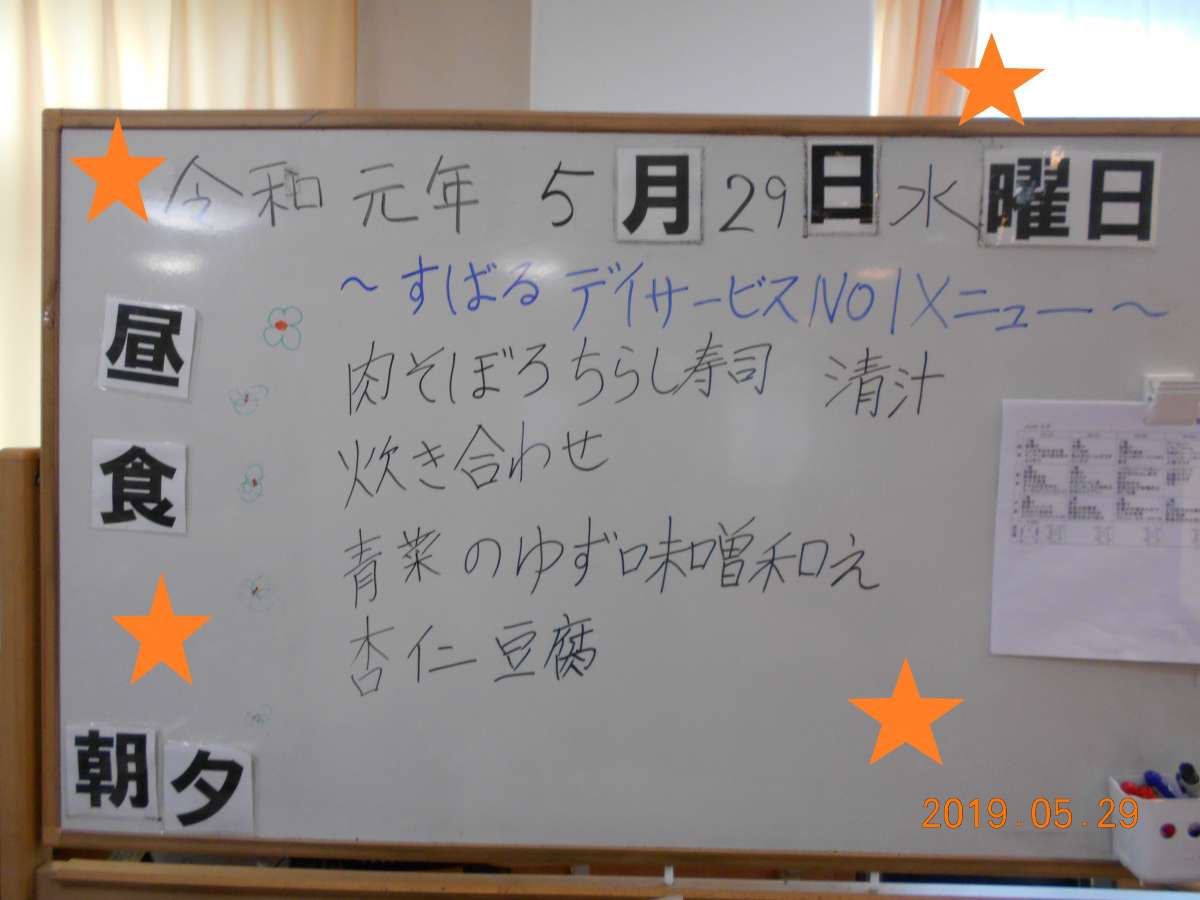 令和元年 5月29日水曜日
～すばるデイサービスNO1メニュー～
昼食
肉そぼろちらし寿司 清汁
炊き合わせ
青菜のゆず味噌和え
杏仁豆腐
朝夕
2019.05.29